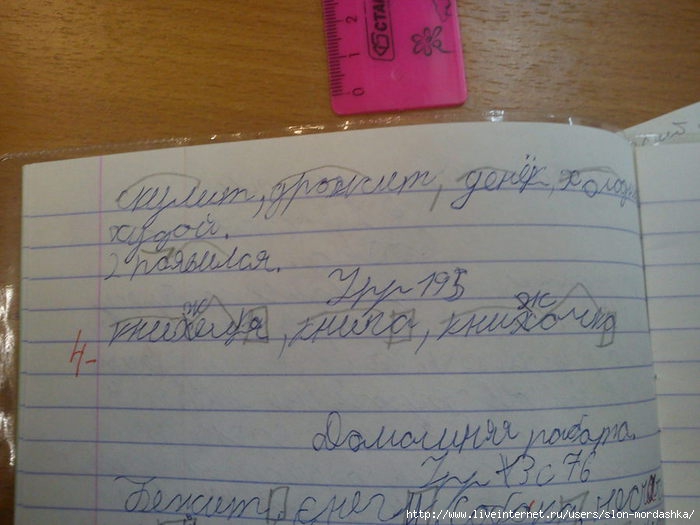 0 1 2 СТАМ
скулит, дрожит, денёк, холодн
худой.
2 появился.
Упр 195
книжица, книга, книжочка
4-
Домашняя работа.
Упр 13 с 76
Бежит, снег
http://www.liveinternet.ru/users/slon-mordashka/